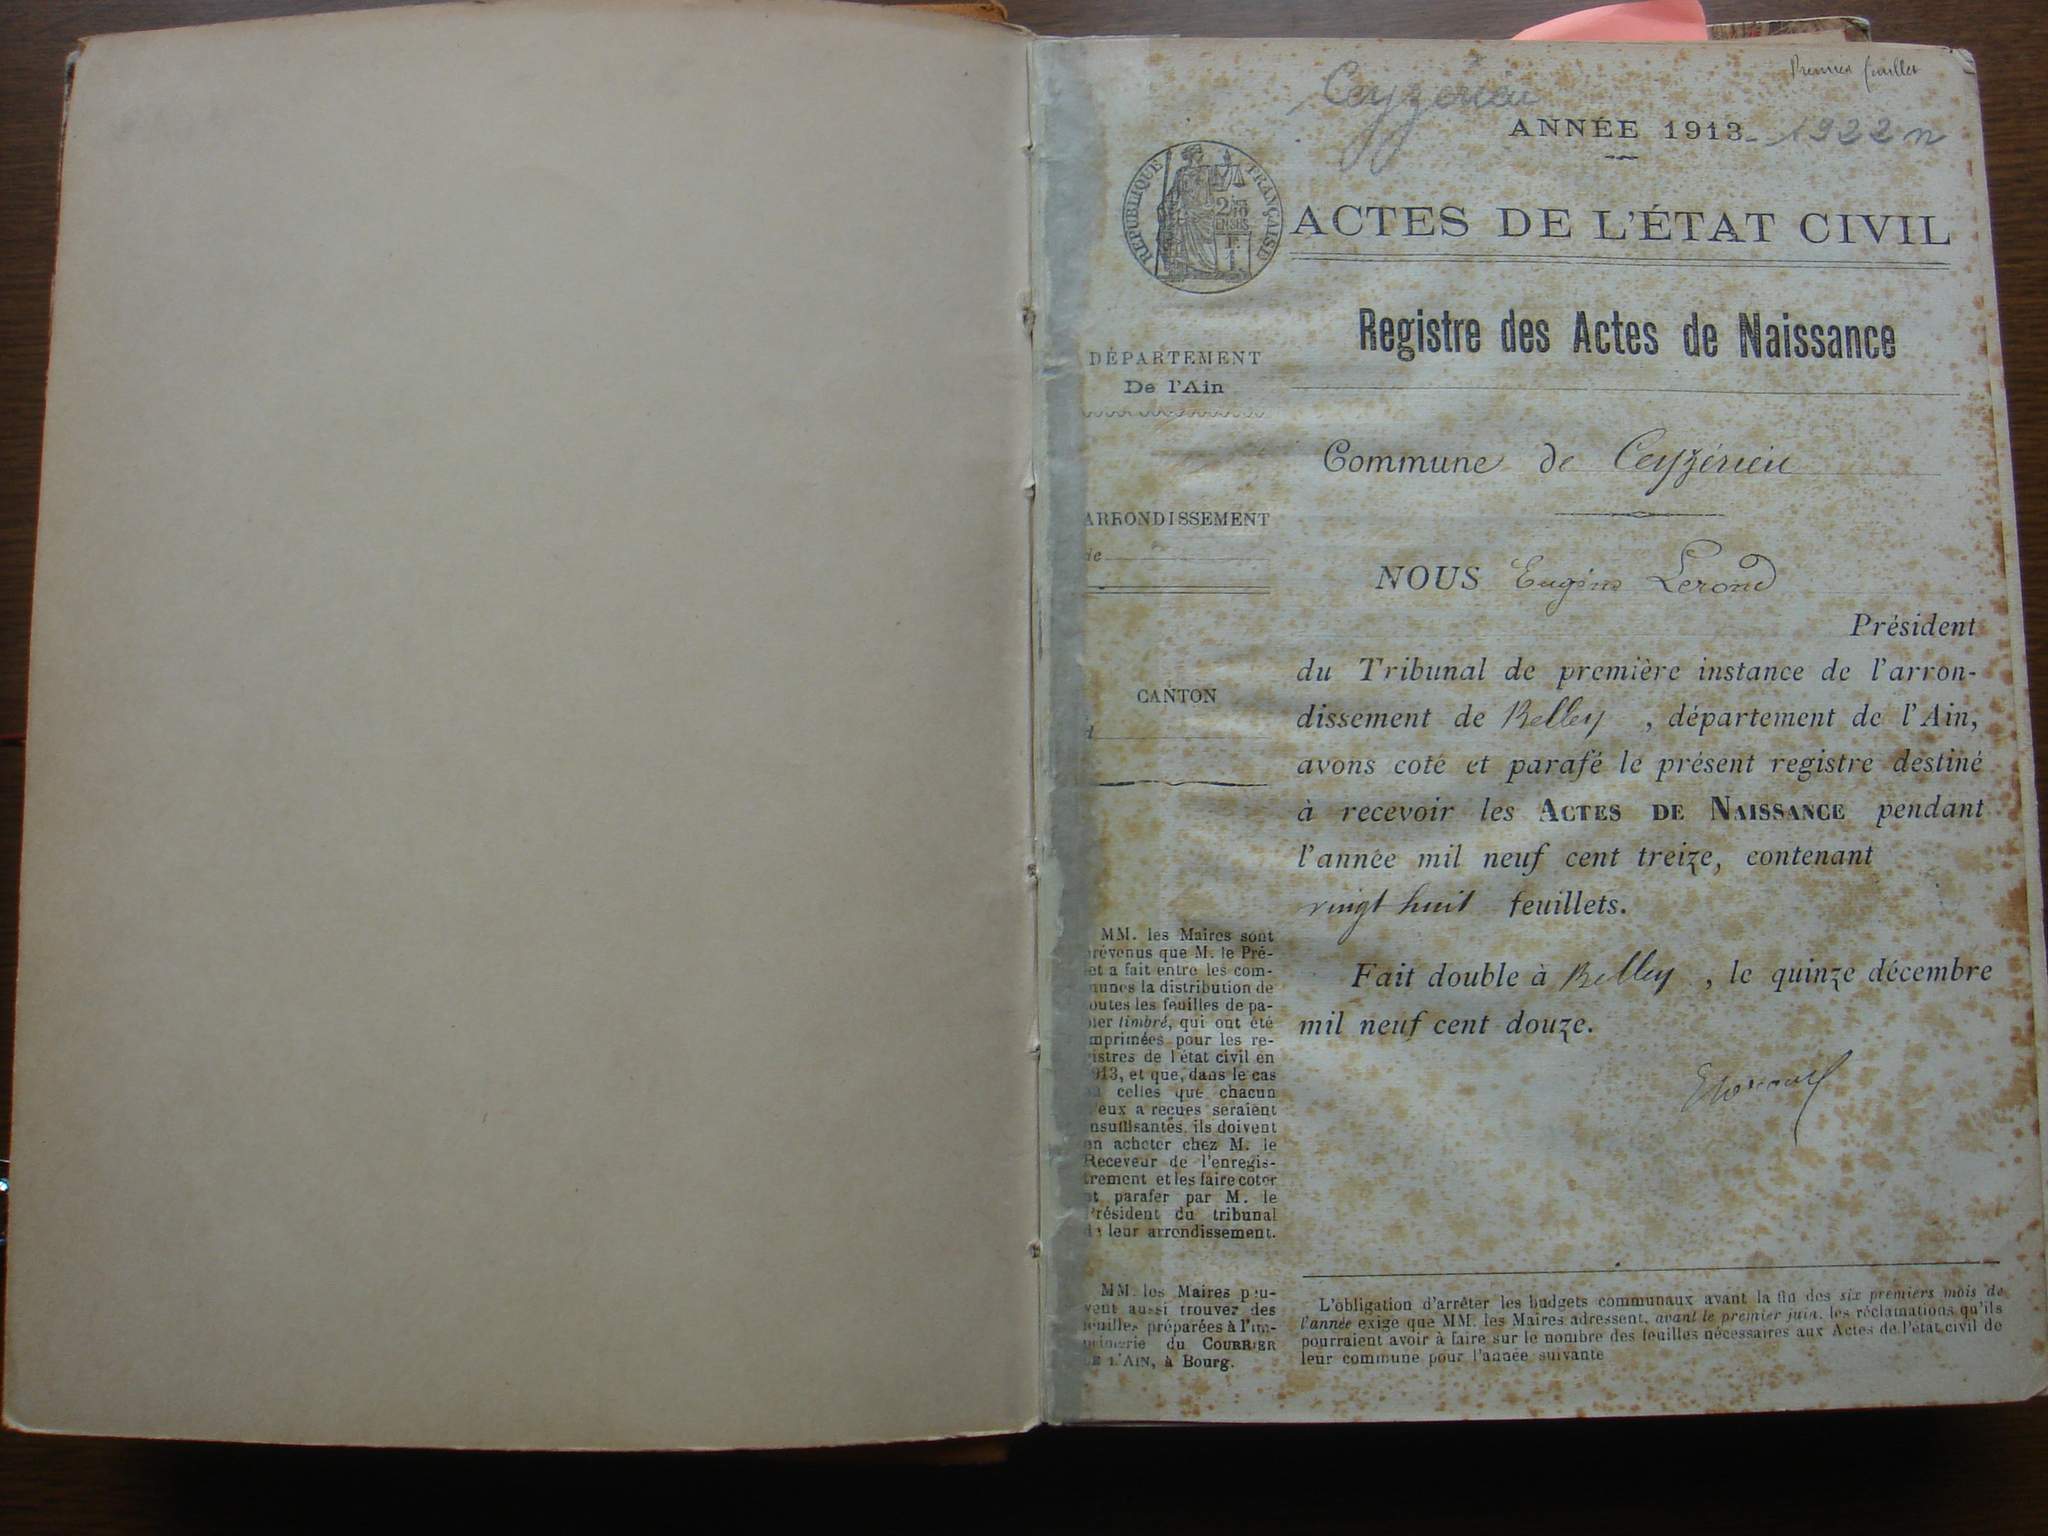 Premier feuillet
Ceyzérieu
ANNÉE 1913 - 1922 n
RÉPUBLIQUE FRANÇAISE
ACTES DE L'ÉTAT CIVIL
Registre des Actes de Naissance
DÉPARTEMENT
De l'Ain
Commune de Ceyzérieu
ARRONDISSEMENT
de
NOUS Eugène Lerond
Président
du Tribunal de première instance de l'arron-
CANTON
dissement de Belley, département de l'Ain,
avons coté et parafé le présent registre destiné
à recevoir les ACTES DE NAISSANCE pendant
l'année mil neuf cent treize, contenant
vingt huit feuillets.
Fait double à Belley, le quinze décembre
mil neuf cent douze.
MM. les Maires sont
révenus que M. le Pré-
et a fait entre les com-
munes la distribution de
outes les feuilles de pa-
ier timbré, qui ont été
mprimées pour les re-
istres de l'état civil en
913, et que, dans le cas
celles que chacun
'eux a reçues seraient
nsuffisantes, ils doivent
en acheter chez M. le
Receveur de l'enregis-
trement et les faire coter
et parafer par M. le
Président du tribunal
de leur arrondissement.
MM. les Maires peu-
vent aussi trouver des
feuilles préparées à l'im-
primerie du COURRIER
DE L'AIN, à Bourg.
L'obligation d'arrêter les budgets communaux avant la fin des six premiers mois de
l'année exige que MM. les Maires adressent, avant le premier juin, les réclamations qu'ils
pourraient avoir à faire sur le nombre des feuilles nécessaires aux Actes de l'état civil de
leur commune pour l'année suivante